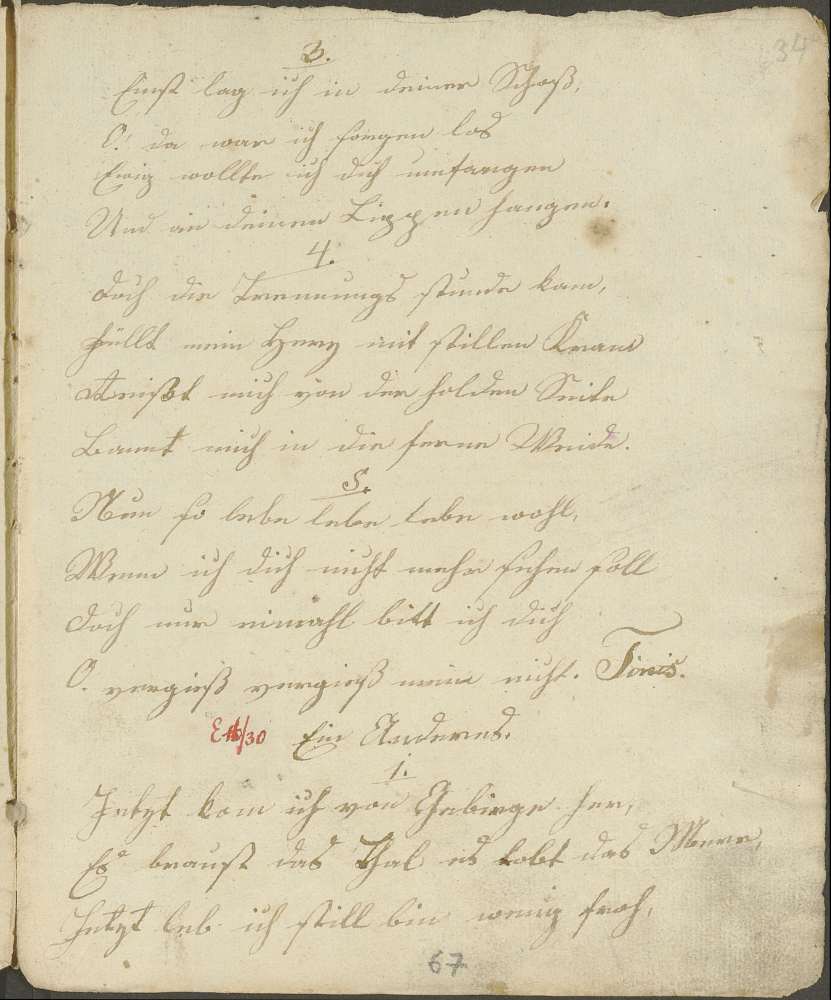 34
3.
Einst lag ich in deiner Schoß,
O! da war ich sorgen los
Ewig wollte ich dich umfangen
Und an deinen Lippen hangen.
4.
Doch die Trennungs stunde kam,
füllt mein Herz mit stillen Kram
Reißt mich von der holden Seite
Bannt mich in die ferne Weide.
5.
Nun so lebe lebe lebe wohl,
Wenn ich dich nicht mehr sehen soll
Doch nur einmahl bitt ich dich
O. vergieß vergieß mein nicht. Finis.
Ein Anderes.
1.
Jetzt kom ich von Gebirge her,
Es braust das Thal es tobt das Meer,
Jetzt leb ich still bin wenig froh,
67